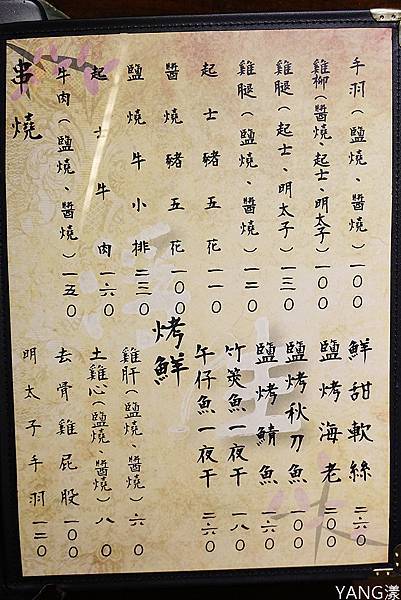 串燒
牛肉(鹽燒、醬燒)一五〇
起士牛肉一六〇
鹽燒牛小排二二〇
醬燒豬五花一〇〇
起士豬五花一一〇
雞腿(鹽燒、醬燒)一二〇
雞腿(起士、明太子)一三〇
雞柳(醬燒、起士、明太子)一〇〇
手羽(鹽燒、醬燒)一〇〇
明太子手羽一二〇
去骨雞屁股一〇〇
土雞心(鹽燒、醬燒)八〇
雞肝(鹽燒、醬燒)六〇
烤鮮
午仔魚一夜干二六〇
竹筴魚一夜干一八〇
鹽烤鯖魚一六〇
鹽烤秋刀魚一〇〇
鹽烤海老二〇〇
鮮甜軟絲二六〇
YANG漾